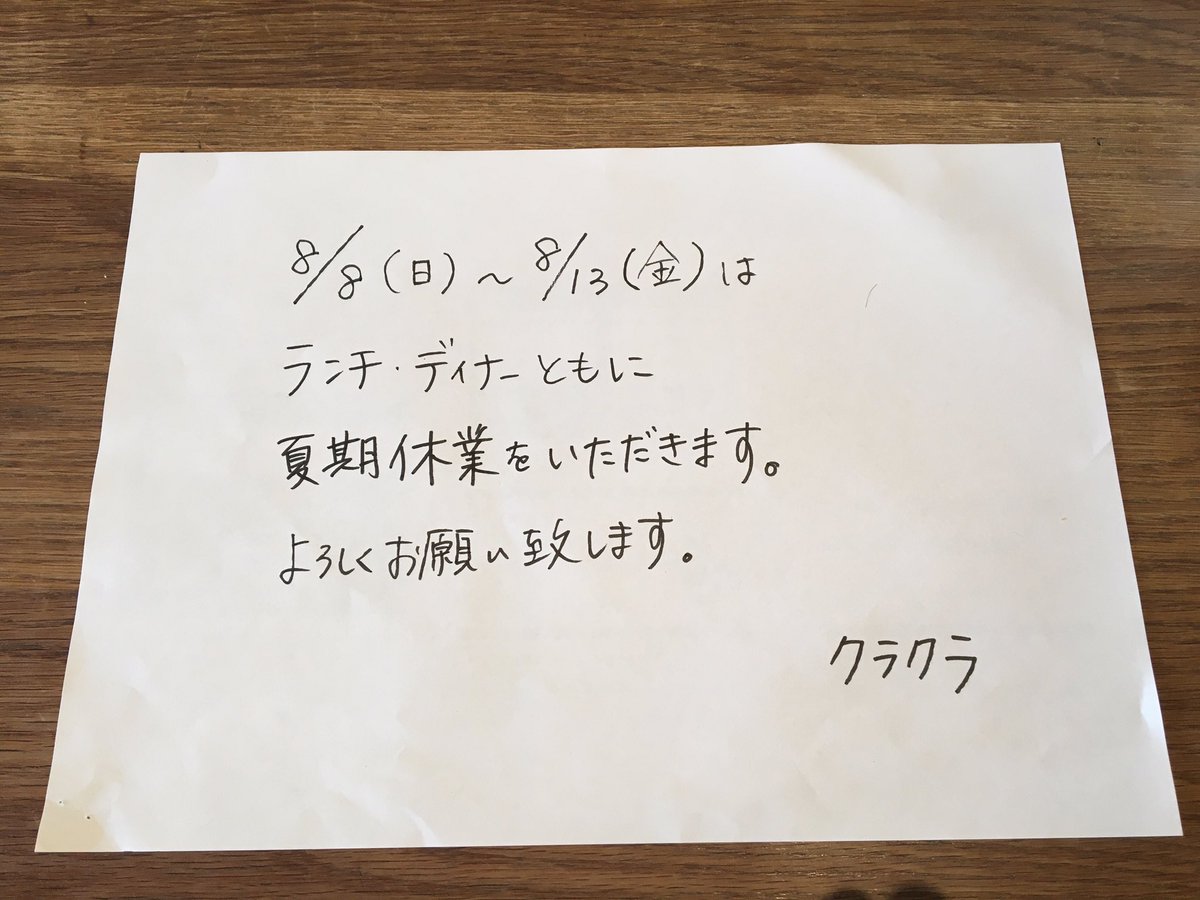 8/8(日)～8/13(金)は
ランチ・ディナーともに
夏期休業をいただきます。
よろしくお願い致します。
クラクラ